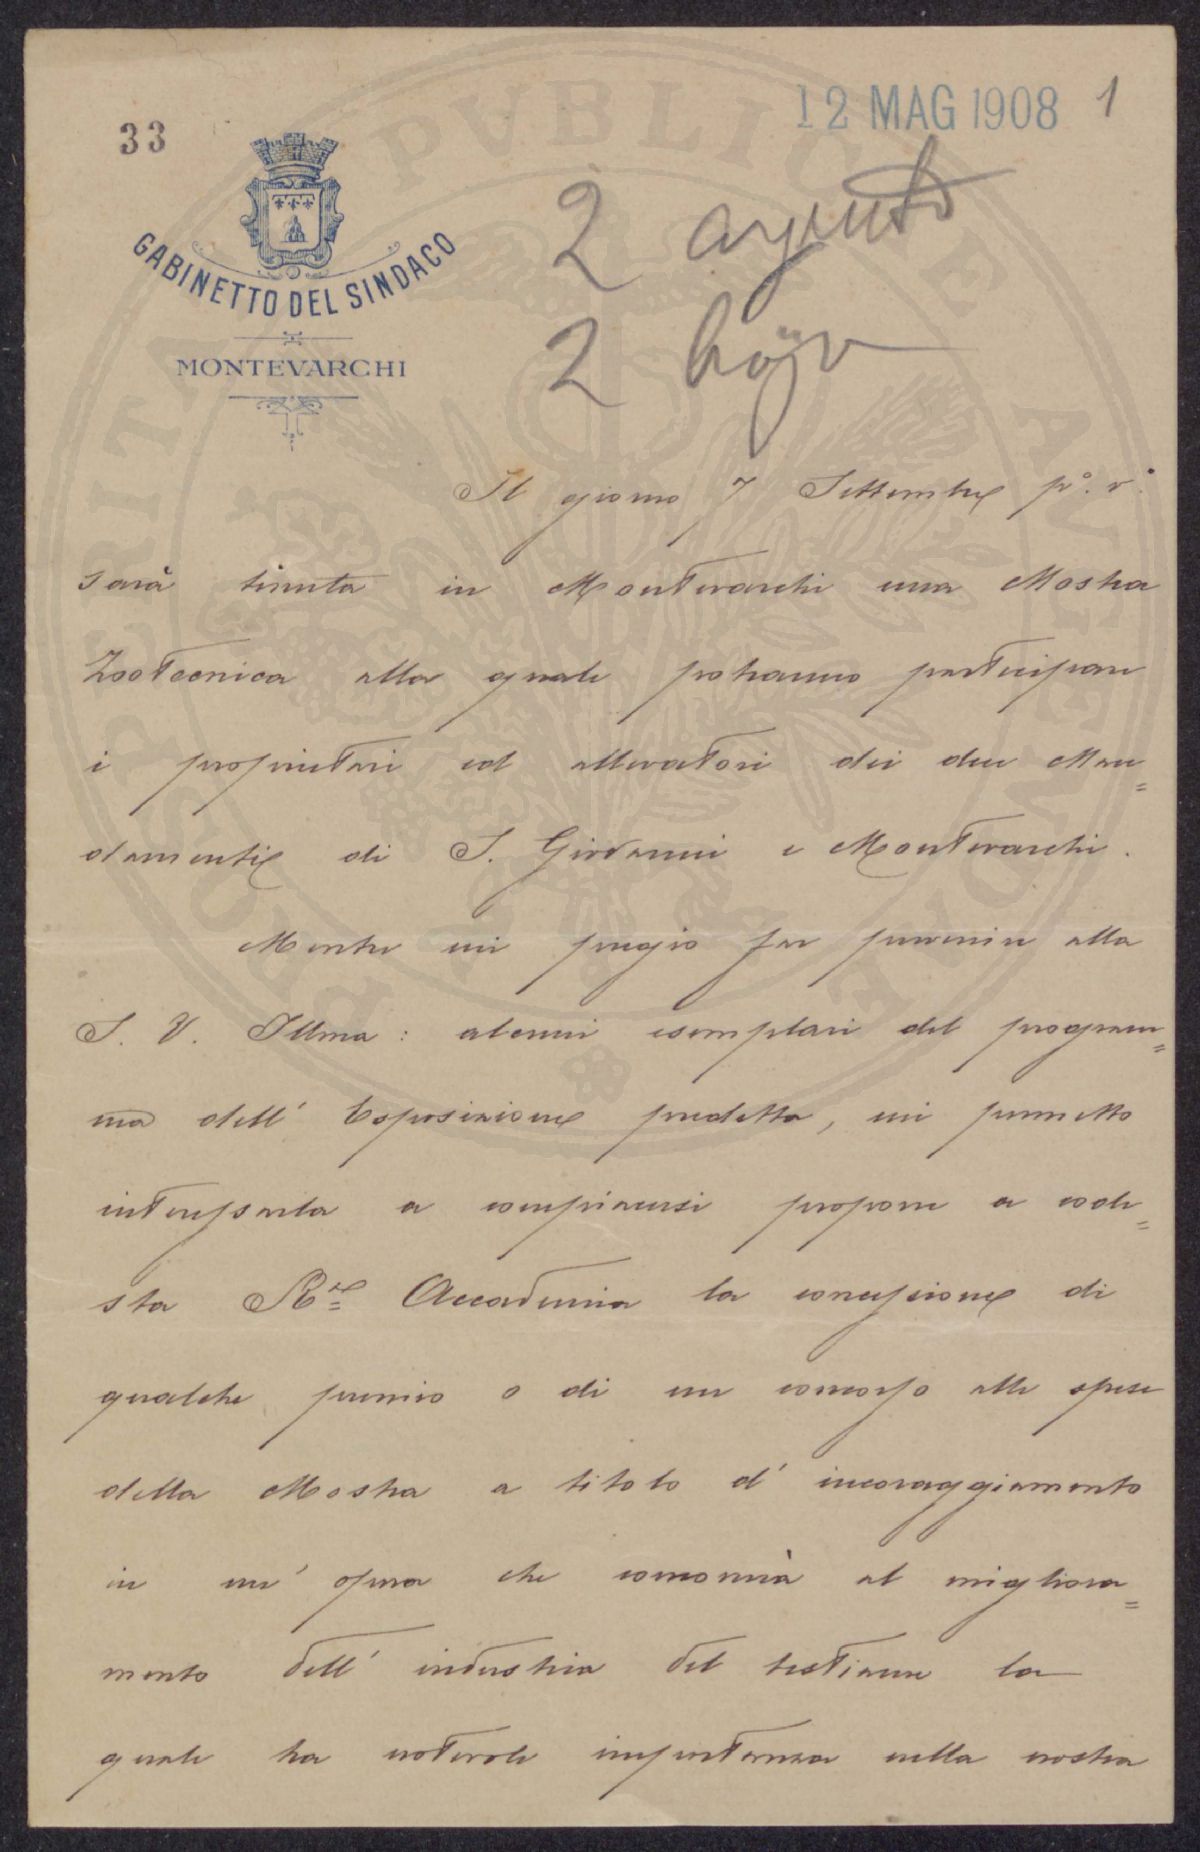 12 MAG 1908 1
33
GABINETTO DEL SINDACO
MONTEVARCHI
2 argento
2
Il giorno 7 Settembre p°. v°.
sarà tenuta in Montevarchi una Mostra
Zootecnica alla quale potranno partecipare
i proprietari ed allevatori dei due Man=
damenti di S. Giovanni e Montevarchi.
Mentre mi pregio far pervenire alla
S. V. Illma: alcuni esemplari del program=
ma dell' Esposizione predetta, mi permetto
interessarla a compiacersi proporre a code=
sta R.le Accademia la concessione di
qualche premio o di un concorso alle spese
della Mostra a titolo d' incoraggiamento
in un' opera che concorrerà al migliora=
mento dell' industria del bestiame la
quale ha notevole importanza nella nostra